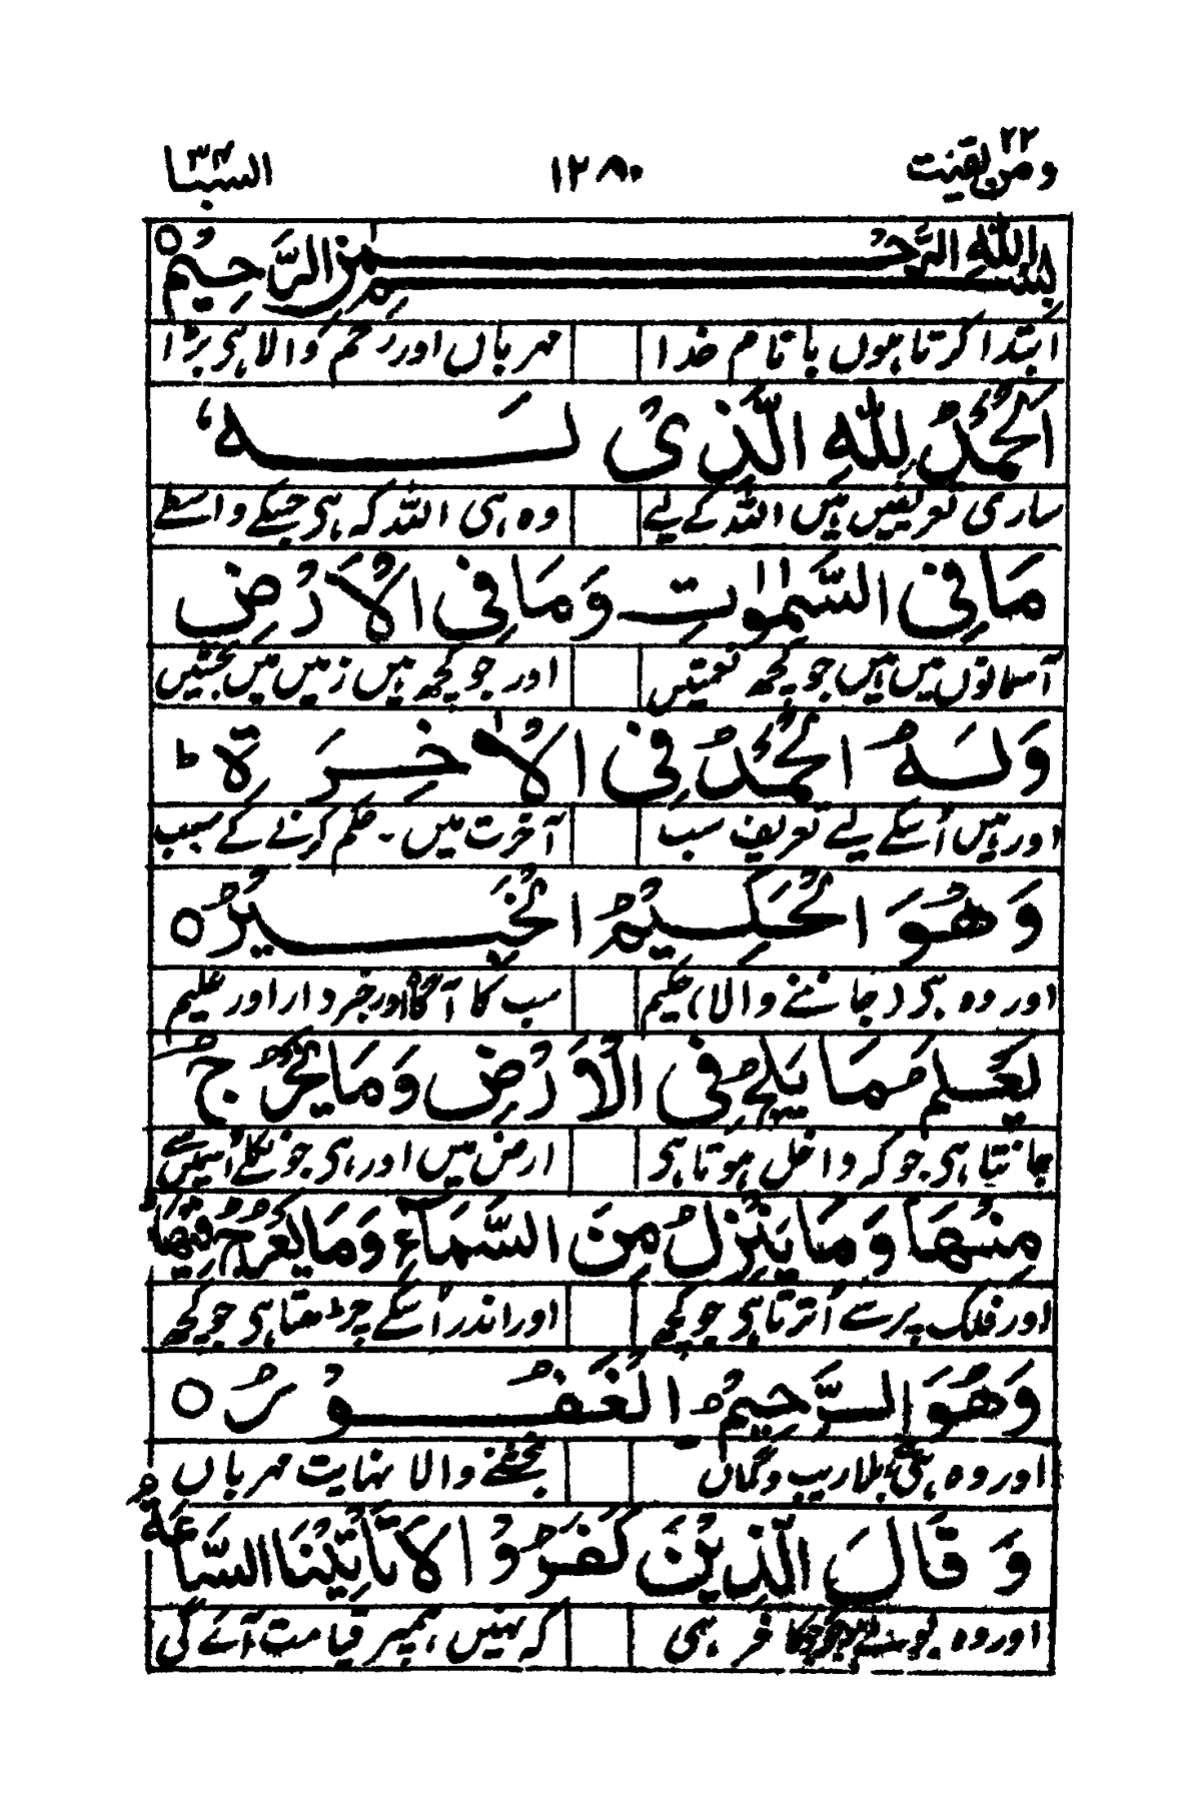 ومن یقنت ۲۲ ۱۲۹۰ السبا ۳۴
بِسْمِ اللّٰهِ الرَّحْمٰنِ الرَّحِيْمِ ○
ابتدا کرتا ہوں با نام خدا مہرباں اور رحم والا ہی بڑا
اَلْحَمْدُ لِلّٰهِ الَّذِیْ لَهٗ
ساری تعریفیں ہیں اللّٰہ کے لیے وہ ہی اللّٰہ کہ ہی جسکے واسطے
مَا فِی السَّمٰوٰتِ وَمَا فِی الْاَرْضِ
آسمانوں میں ہیں جو کچھ نعمتیں اور جو کچھ ہیں زمیں میں بخششیں
وَلَهُ الْحَمْدُ فِی الْاٰخِرَةِ ؕ
اور ہیں اُسکے لیے تعریف سب آخرت میں - حکم کرنے کے سبب
وَهُوَ الْحَكِیْمُ الْخَبِیْرُ ○
اور وہ ہی (جاننے والا) حکیم سب کا آگاہ اور خبردار اور علیم
یَعْلَمُ مَا یَلِجُ فِی الْاَرْضِ وَمَا یَخْرُجُ
جانتا ہی جو کہ داخل ہوتا ہی ارض میں اور ہی جو نکلے اُسمیں سے
مِنْهَا وَمَا یَنْزِلُ مِنَ السَّمَآءِ وَمَا یَعْرُجُ فِیْهَا ؕ
اور فلک پر سے اُترتا ہی جو کچھ اور اندر اُسکے چڑھتا ہی جو کچھ
وَهُوَ الرَّحِیْمُ الْغَفُوْرُ ○
اور وہ ہی بلا ریب و گماں بخشنے والا نہایت مہرباں
وَ قَالَ الَّذِیْنَ كَفَرُوْا لَا تَاْتِیْنَا السَّاعَةُ ؕ
اور وہ بولے کافر ہی کہ نہیں ہمپر قیامت آئے گی